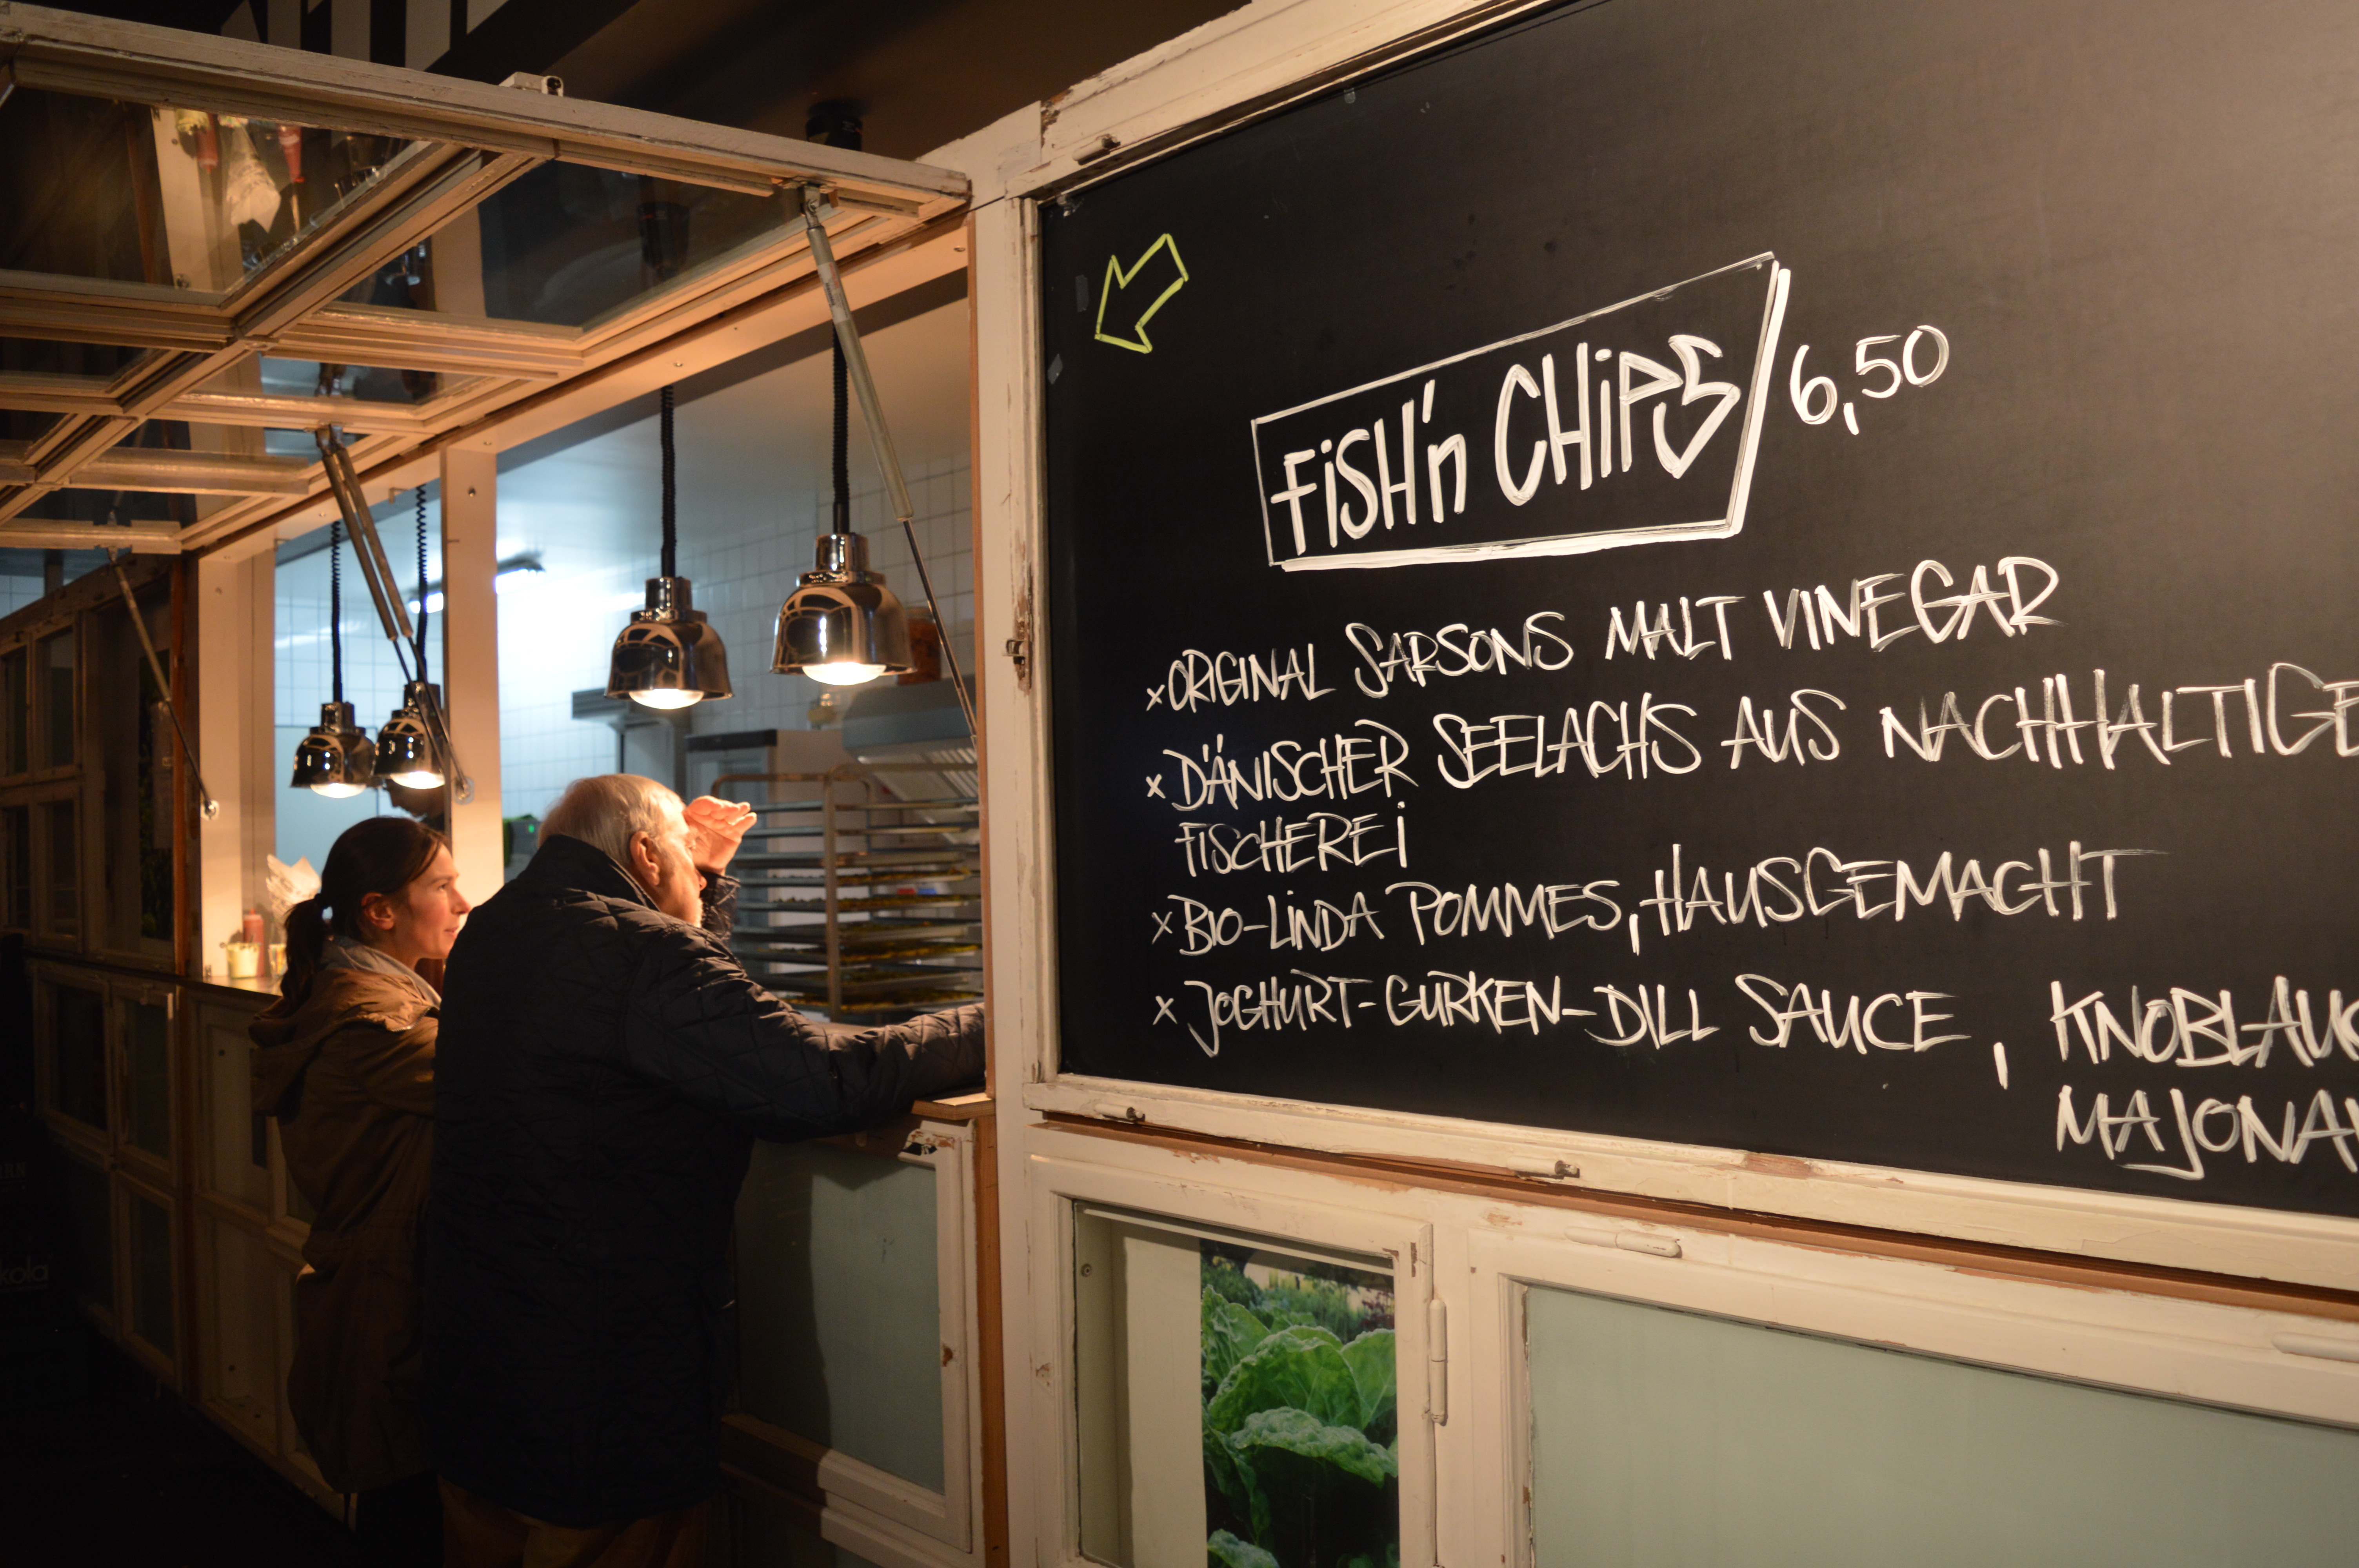 FiSH'n CHiPS 6,50
x ORIGINAL SARSONS MALT VINEGAR
x DÄNISCHER SEELACHS AUS NACHHALTIGE
FISCHEREi
x BIO-LINDA POMMES, HAUSGEMACHT
x JOGHURT-GURKEN-DILL SAUCE, KNOBLAUC
MAJONA
kola